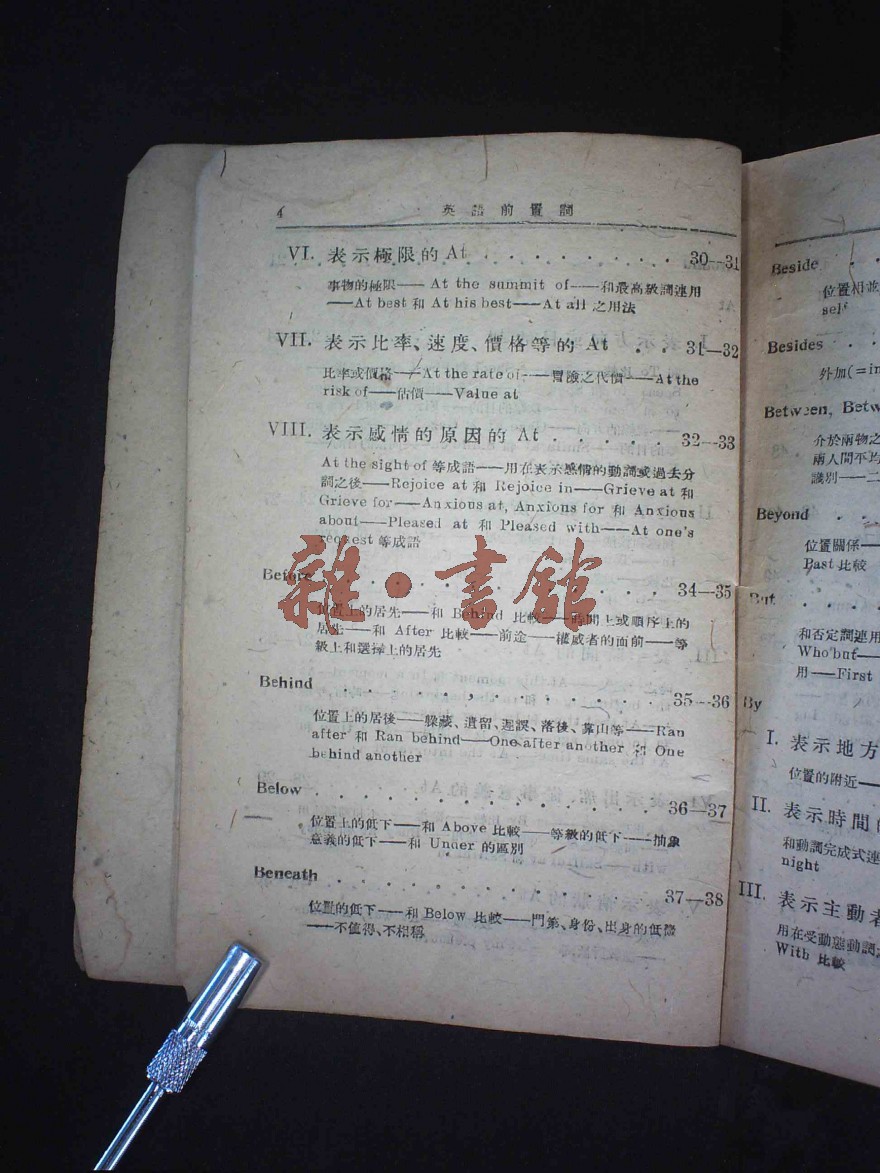 4
英語前置詞
VI. 表示極限的 At . . . . . . . . . . 30—31
事物的極限——At the summit of——和最高級詞連用
——At best 和 At his best——At all 之用法
VII. 表示比率、速度、價格等的 At . . 31—32
比率或價格——At the rate of——冒險之代價——At the
risk of——估價——Value at
VIII. 表示感情的原因的 At . . . . . . 32—33
At the sight of 等成語——用在表示感情的動詞或過去分
詞之後——Rejoice at 和 Rejoice in——Grieve at 和
Grieve for——Anxious at, Anxious for 和 Anxious
about——Pleased at 和 Pleased with——At one's
request 等成語
Before . . . . . . . . . . . . 34—35
位置上的居先——和 Behind 比較——時間上或順序上的
居先——和 After 比較——前途——權威者的面前——等
級上和選擇上的居先
Behind . . . . . , . . . . . . 35—36
位置上的居後——躲藏、遺留、遲誤、落後、靠山等——Ran
after 和 Ran behind——One after another 和 One
behind another
Below . . . . . . . . . . . . 36—37
位置上的低下——和 Above 比較——等級的低下——抽象
意義的低下——和 Under 的區別
Beneath . . . . . . . . . . . . 37—38
位置的低下——和 Below 比較——門第、身份、出身的低微
——不值得、不相稱
雜·書館
Beside . .
位置相並
self
Besides . .
外加(=in
Between, Betw
介於兩物之
兩人間平均
識別——二
Beyond . .
位置關係——
Past 比較
But . . . .
和否定詞連用
Who but——
用——First
By
I. 表示地方
位置的附近——
II. 表示時間
和動詞完成式連
night
III. 表示主動者
用在受動態動詞
With 比較